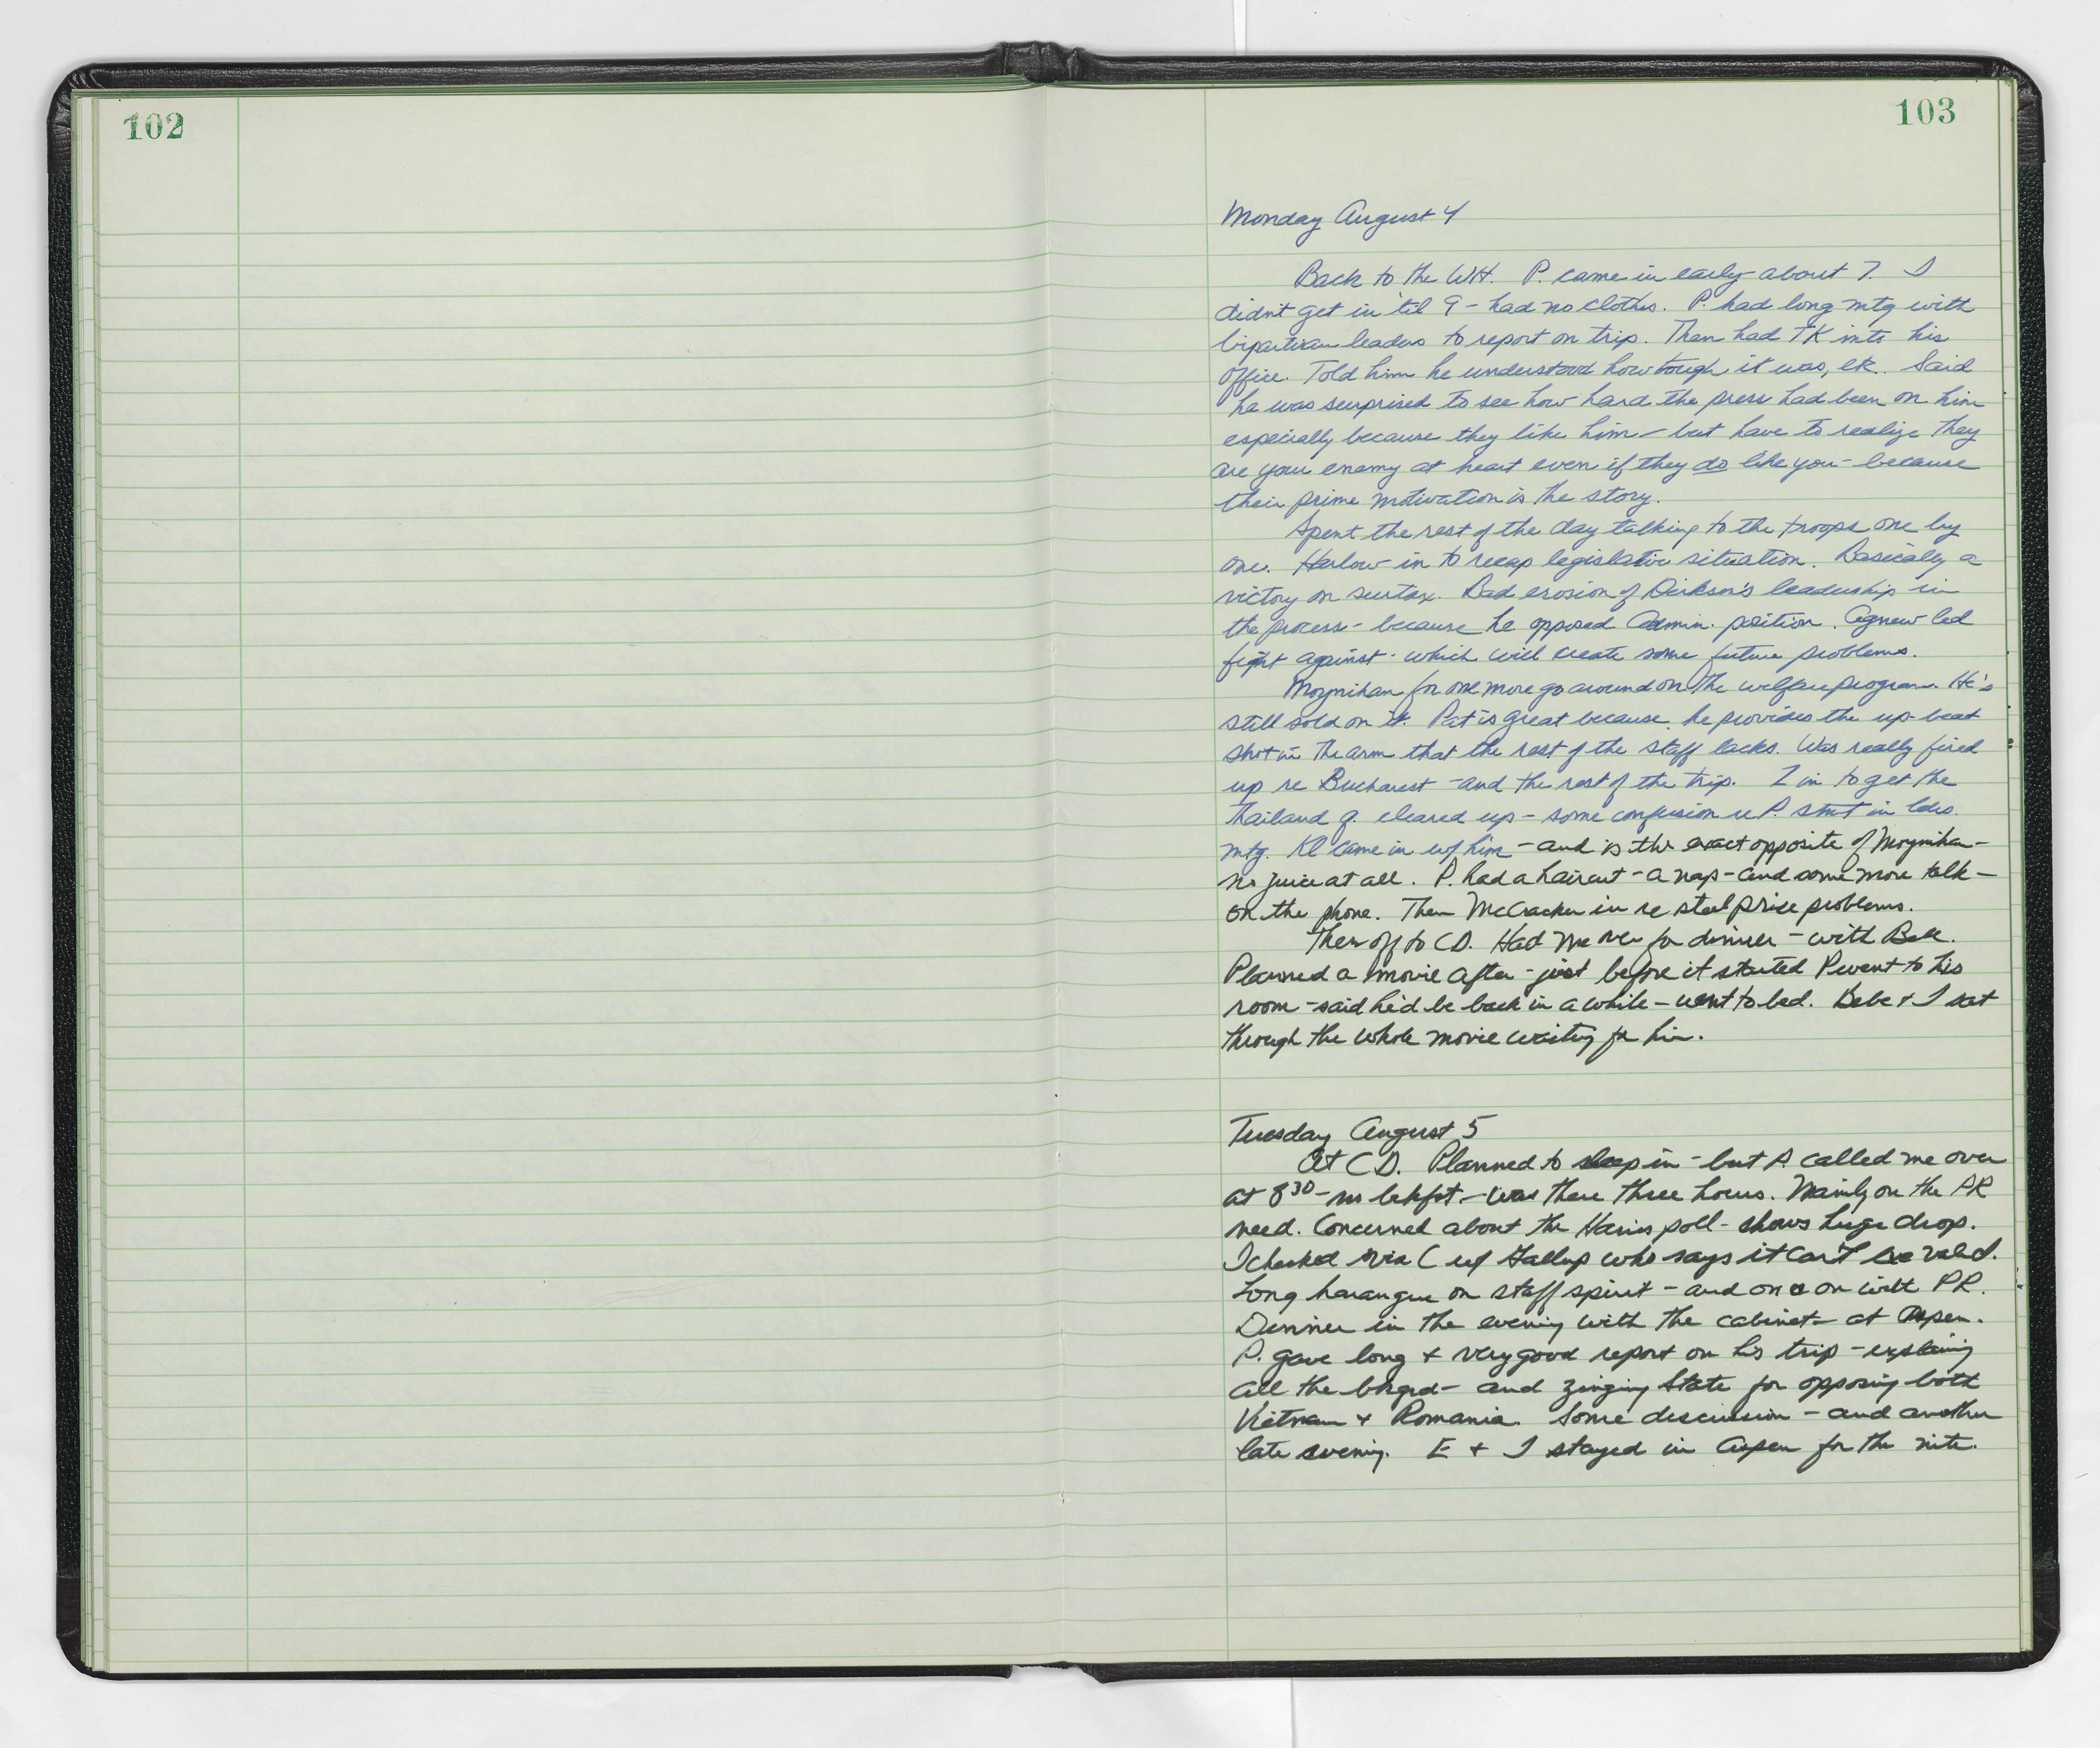 102
103
Monday August 4
Back to the WH. P. came in early about 7. I
didn't get in 'til 9 - had no clothes. P. had long mtg with
bipartisan leaders to report on trip. Then had TK into his
office. Told him he understood how tough it was, etc. Said
he was surprised to see how hard the press had been on him
especially because they like him - but have to realize they
are your enemy at heart even if they do like you - because
their prime motivation is the story.
Spent the rest of the day talking to the troops one by
one. Harlow in to recap legislative situation. Basically a
victory on surtax. Bad erosion of Dirksen's leadership in
the process - because he opposed Admin. position. Agnew led
fight against - which will create some future problems.
Moynihan for one more go around on the welfare program. He's
still sold on it. Pat is great because he provides the up-beat
shot in the arm that the rest of the staff lacks. Was really fired
up re Bucharest - and the rest of the trip. Z in to get the
Thailand q. cleared up - some confusion re P. stmt in ldrs.
mtg. Kl came in w/ him - and is the exact opposite of Moynihan -
no juice at all. P. had a haircut - a nap - and some more talk -
on the phone. Then McCracken in re steel price problems.
Then off to CD. Had me over for dinner - with Bebe.
Planned a movie after - just before it started P went to his
room - said he'd be back in a while - went to bed. Bebe + I sat
through the whole movie waiting for him.
Tuesday August 5
At CD. Planned to sleep in - but P. called me over
at 8³⁰ - no bkfst - was there three hours. Mainly on the PR
need. Concerned about the Harris poll - shows huge drop.
I checked via C w/ Gallup who says it can't be valid.
Long harangue on staff spirit - and on + on with PR.
Dinner in the evening with the cabinet - at Aspen.
P. gave long + very good report on his trip - explaining
all the bkgrd - and zinging State for opposing both
Vietnam + Romania. Some discussion - and another
late evening. E + I stayed in Aspen for the nite.